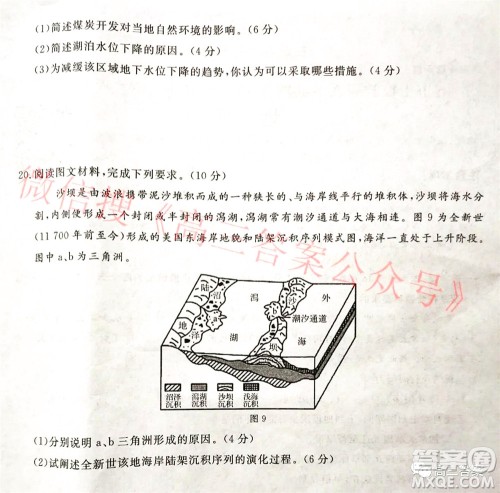 (1)简述煤炭开发对当地自然环境的影响。(6分)
(2)简述湖泊水位下降的原因。(4分)
(3)为减缓该区域地下水位下降的趋势,你认为可以采取哪些措施。(4分)
20.阅读图文材料,完成下列要求。(10分)
沙坝是由波浪携带泥沙堆积而成的一种狭长的、与海岸线平行的堆积体,沙坝将海水分
割,内侧便形成一个封闭或半封闭的潟湖,潟湖常有潮汐通道与大海相连。图9为全新世
(11 700年前至今)形成的美国东海岸地貌和陆架沉积序列模式图,海洋一直处于上升阶段。
图中a、b为三角洲。
陆 潟 沙 外
a b 潮汐通道
地 沼 湖 坝 海
泽
沼泽沉积 潟湖沉积 沙坝沉积 浅海沉积
图9
(1)分别说明a、b三角洲形成的原因。(4分)
(2)试阐述全新世该地海岸陆架沉积序列的演化过程。(6分)
微信搜《高三答案公众号》
答案圈